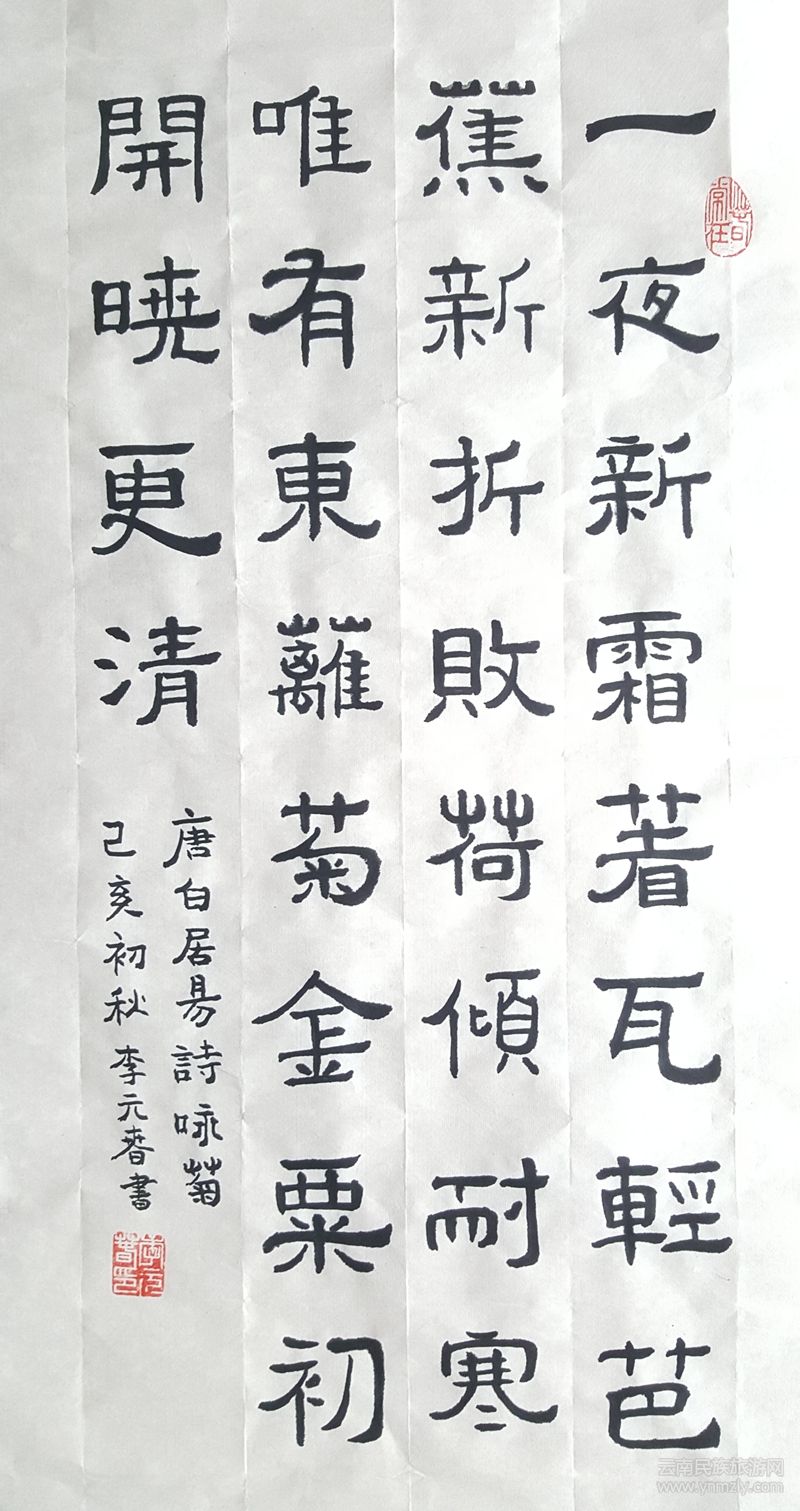 一夜新霜著瓦輕芭
蕉新折敗荷傾耐寒
唯有東蘺菊金粟初
開曉更清
唐白居易詩咏菊
己亥初秋李元春書
云南民族旅游网
www.ynmzly.com